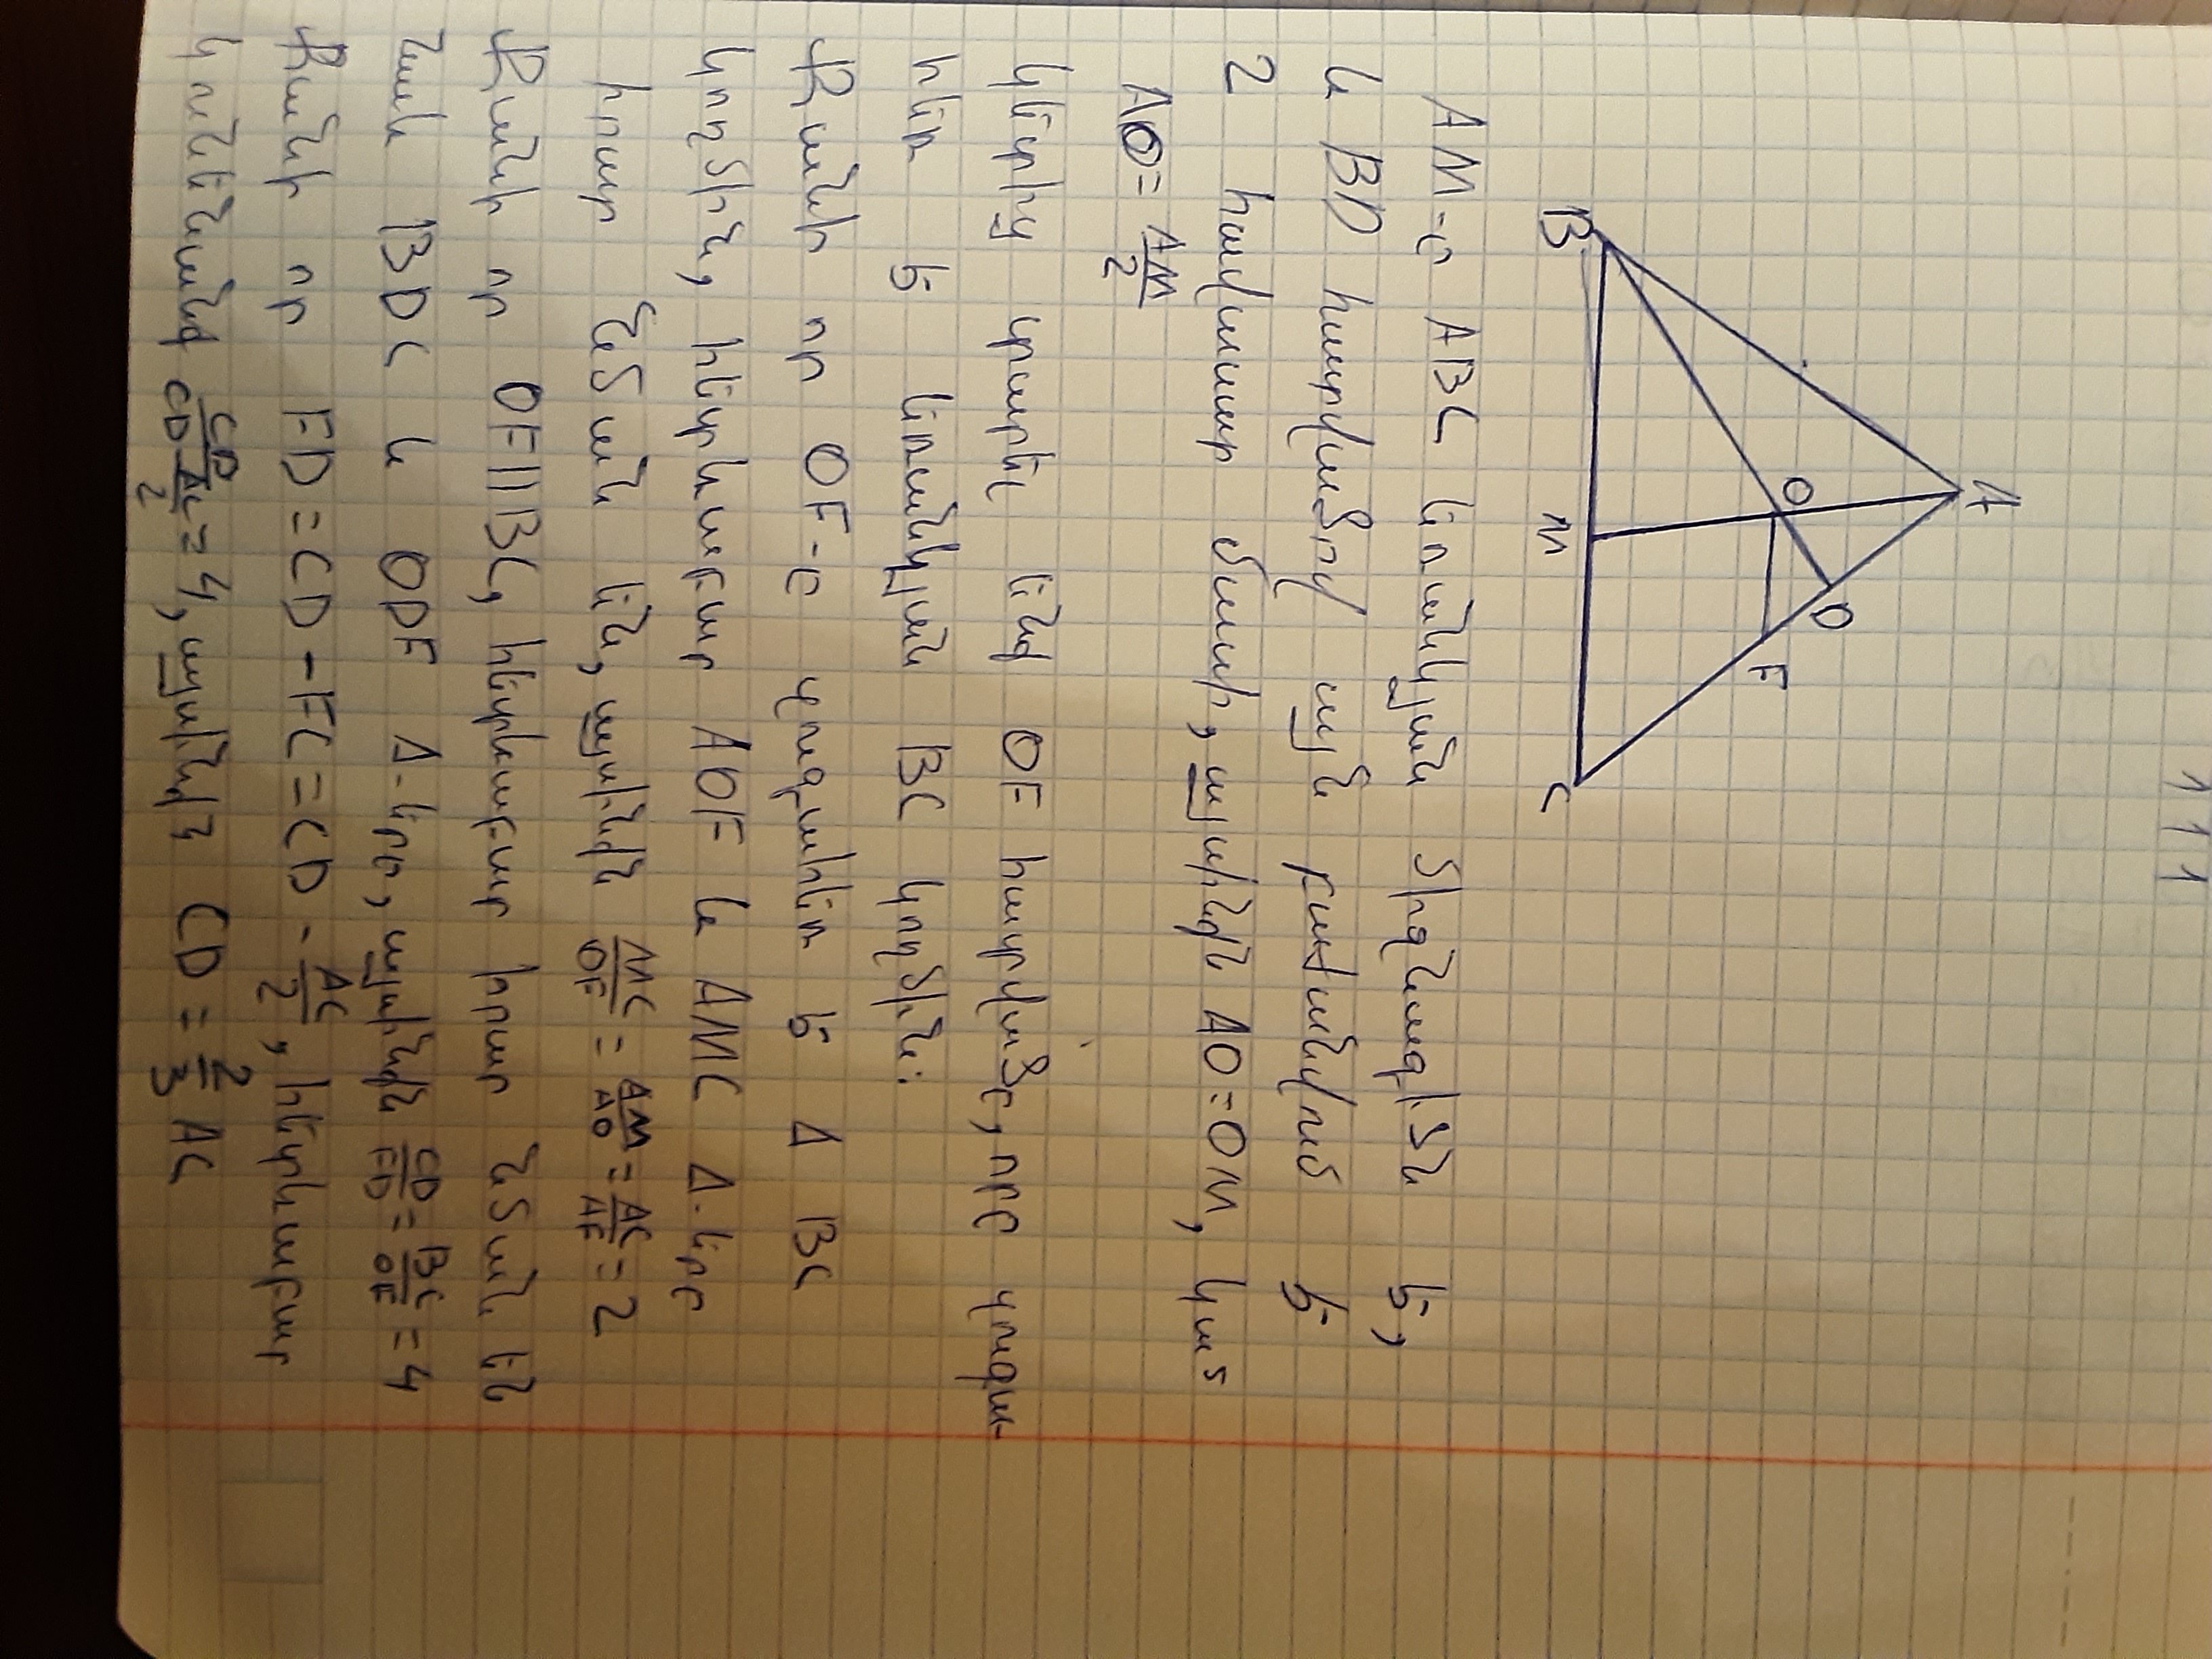 1111
A
B
O
D
F
M
C
AM-ը ABC եռանկյան միջնագիծն է,
և BD հատվածով այն բաժանվում է
2 հավասար մասի, այսինքն AO=OM, կամ
AO = AM/2
կետից տարել ենք OF հատվածը, որը զուգա-
հեռ է եռանկյան BC կողմին:
Քանի որ OF-ը զուգահեռ է Δ BC
կողմին, հետևաբար AOF և AMC Δ-երը
իրար նման են, այսինքն MC/OF = AM/AO = AC/AF = 2
Քանի որ OF||BC, հետևաբար իրար նման են
նաև BDC և ODF Δ-երը, այսինքն CD/FD = BC/OF = 4
Քանի որ FD = CD - FC = CD - AC/2, հետևաբար
կունենանք CD/CD-AC/2 = 4, այսինքն CD = 2/3 AC